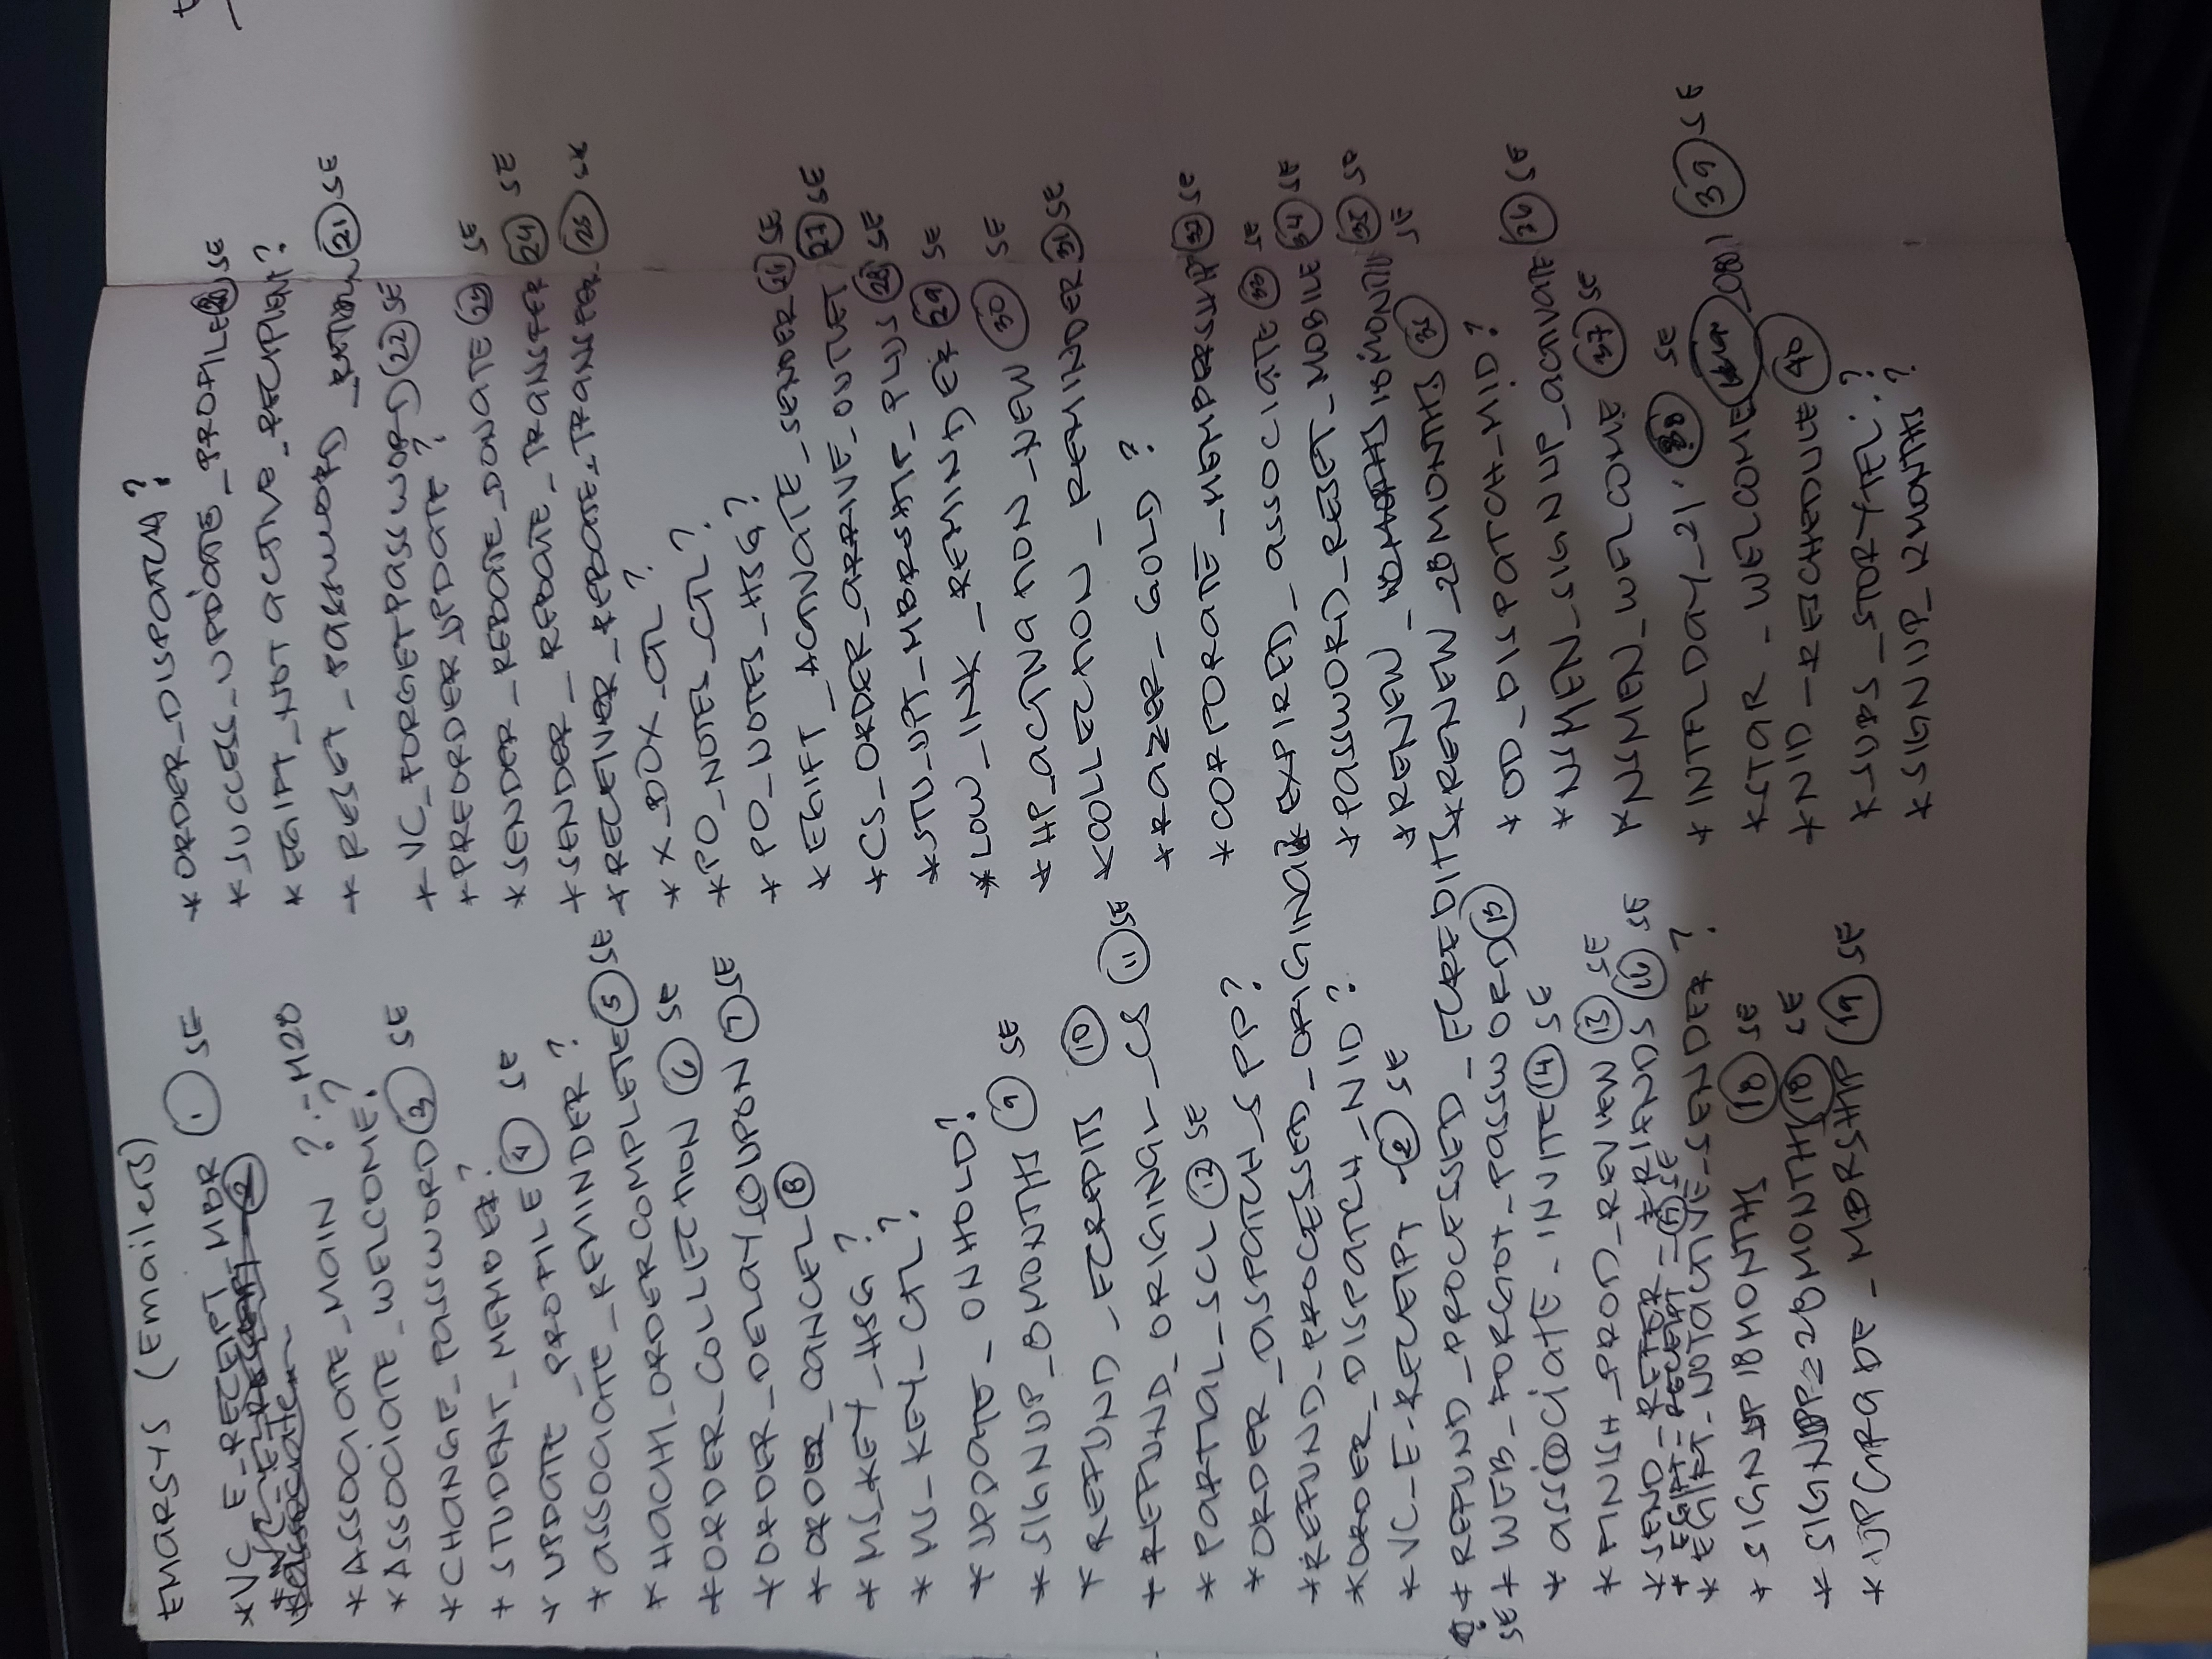 EMARSYS (Emailers)
*VC_E-RECEIPT_MBR ① SE
*VC_E-RECEIPT ②
*associate
*ASSOCIATE_MAIN ? - M28
*ASSOCIATE_WELCOME?
*CHANGE_PASSWORD ③ SE
*STUDENT_MEMBER?
*UPDATE_PROFILE ④ SE
*ASSOCIATE_REMINDER ?
*HACHI_ORDERCOMPLETE ⑤ SE
*ORDER_COLLECTION ⑥ SE
*ORDER_DELAY_COUPON ⑦ SE
*ORDER_CANCEL ⑧
*MS_KEY_HSG ?
*MS_KEY_CTL ?
*UPDATE_ONHOLD?
*SIGNUP_8MONTHS ⑨ SE
*REFUND_ECREDITS ⑩
*REFUND_ORIGINAL_CS ⑪ SE
*PARTIAL_SCL ⑫ SE
*ORDER_DISPATCH_SPP?
*REFUND_PROCESSED_ORIGINAL?
*ORDER_DISPATCH_NID ?
*VC_E-RECEIPT - ② SE
? * REFUND_PROCESSED_ECREDITS
SE * WEB_FORGOT_PASSWORD ⑬
*ASSOCIATE_INVITE ⑭ SE
*FINISH_PROD_REVIEW ⑮ SE
*SEND_REFER_FRIENDS ⑯ SE
*EGIFT_RECEIPT - ⑰ SE
*EGIFT_NOTACTIVE_SENDER ?
*SIGNUP 18MONTHS ⑱ SE
*SIGNUP_28MONTHS ⑱ SE
*UPGRADE_MBRSHIP ⑲ SE
*ORDER_DISPATCH?
*SUCCESS_UPDATE_PROFILE ⑳ SE
*EGIFT_NOTACTIVE_RECIPIENT?
*RESET_PASSWORD ㉑ SE
*VC_FORGETPASSWORD ㉒ SE
*PREORDER_UPDATE ?
*SENDER_REBATE_DONATE ㉓ SE
*SENDER_REBATE_TRANSFER ㉔ SE
*RECEIVER_REBATE_TRANSFER ㉕ SE
*X_BOX_CTL ?
*PO_NOTES_CTL ?
*PO_NOTES_HSG ?
*EGIFT_ACTIVATE_SENDER ㉖ SE
*CS_ORDER_ARRIVE_OUTLET ㉗ SE
*STU_UPT_MBRSHIP_PLUS ㉘ SE
*LOW_INK_REMINDER ㉙ SE
*HP_ACTIVATION_NEW ㉚ SE
*COLLECTION_REMINDER ㉛ SE
*RAZER_GOLD ?
*CORPORATE_MEMBERSHIP ㉜ SE
*EXPIRED_ASSOCIATE ㉝ SE
*PASSWORD_RESET_MOBILE ㉞ SE
*RENEW_18MONTHS ㉟ SE
*RENEW_28MONTHS ㉟ SE
*OD_DISPATCH_MID?
*NSMEN_SIGNUP_ACTIVATE ㊱ SE
*NSMEN_WELCOME ㊲ SE
*INTELDAY_21 ㊳ SE
*STAR_WELCOME ㊴ SE
*NID_RESCHEDULE ㊵
*SUBS_STORYTEL: ?
*SIGNUP_12MONTHS ?